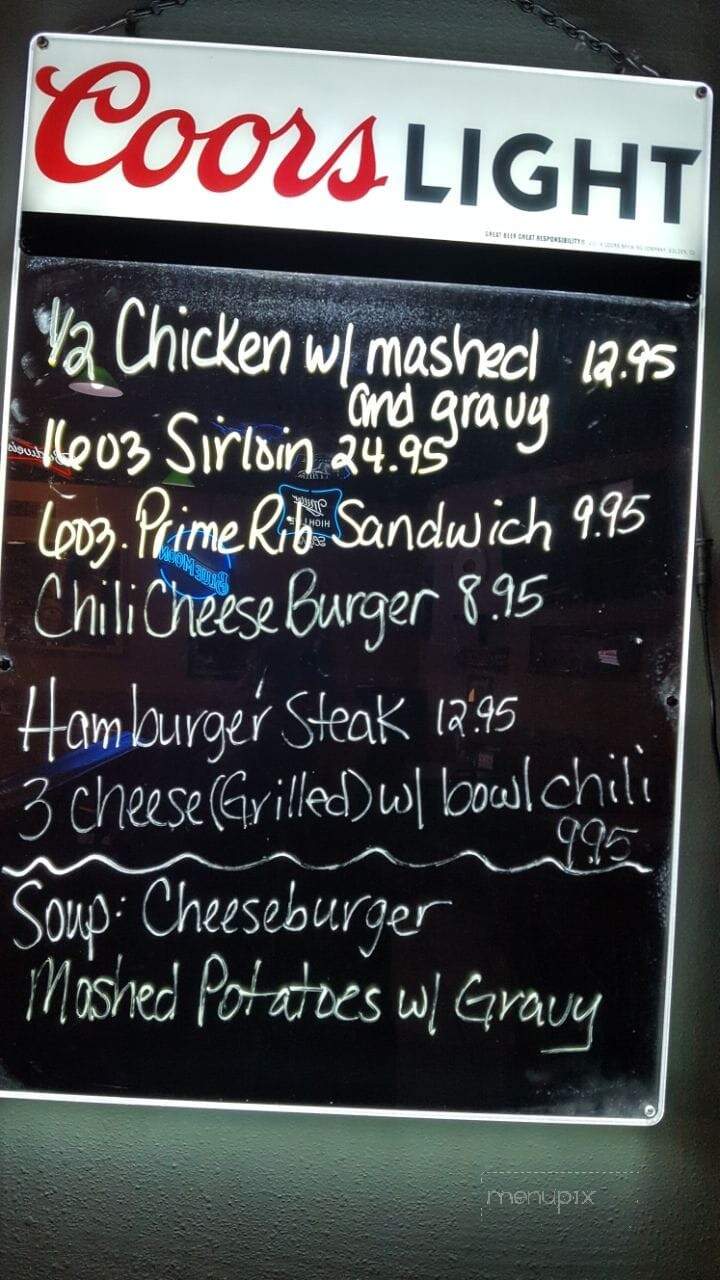 Coors LIGHT
GREAT BEER GREAT RESPONSIBILITY®
1/2 Chicken w/ mashed 12.95
and gravy
16oz Sirloin 24.95
6oz. Prime Rib Sandwich 9.95
Chili Cheese Burger 8.95
Hamburger Steak 12.95
3 cheese (Grilled) w/ bowl chili
9.95
Soup: Cheeseburger
Mashed Potatoes w/ Gravy
BLUE MOON
Miller
HIGH LIFE
menupix